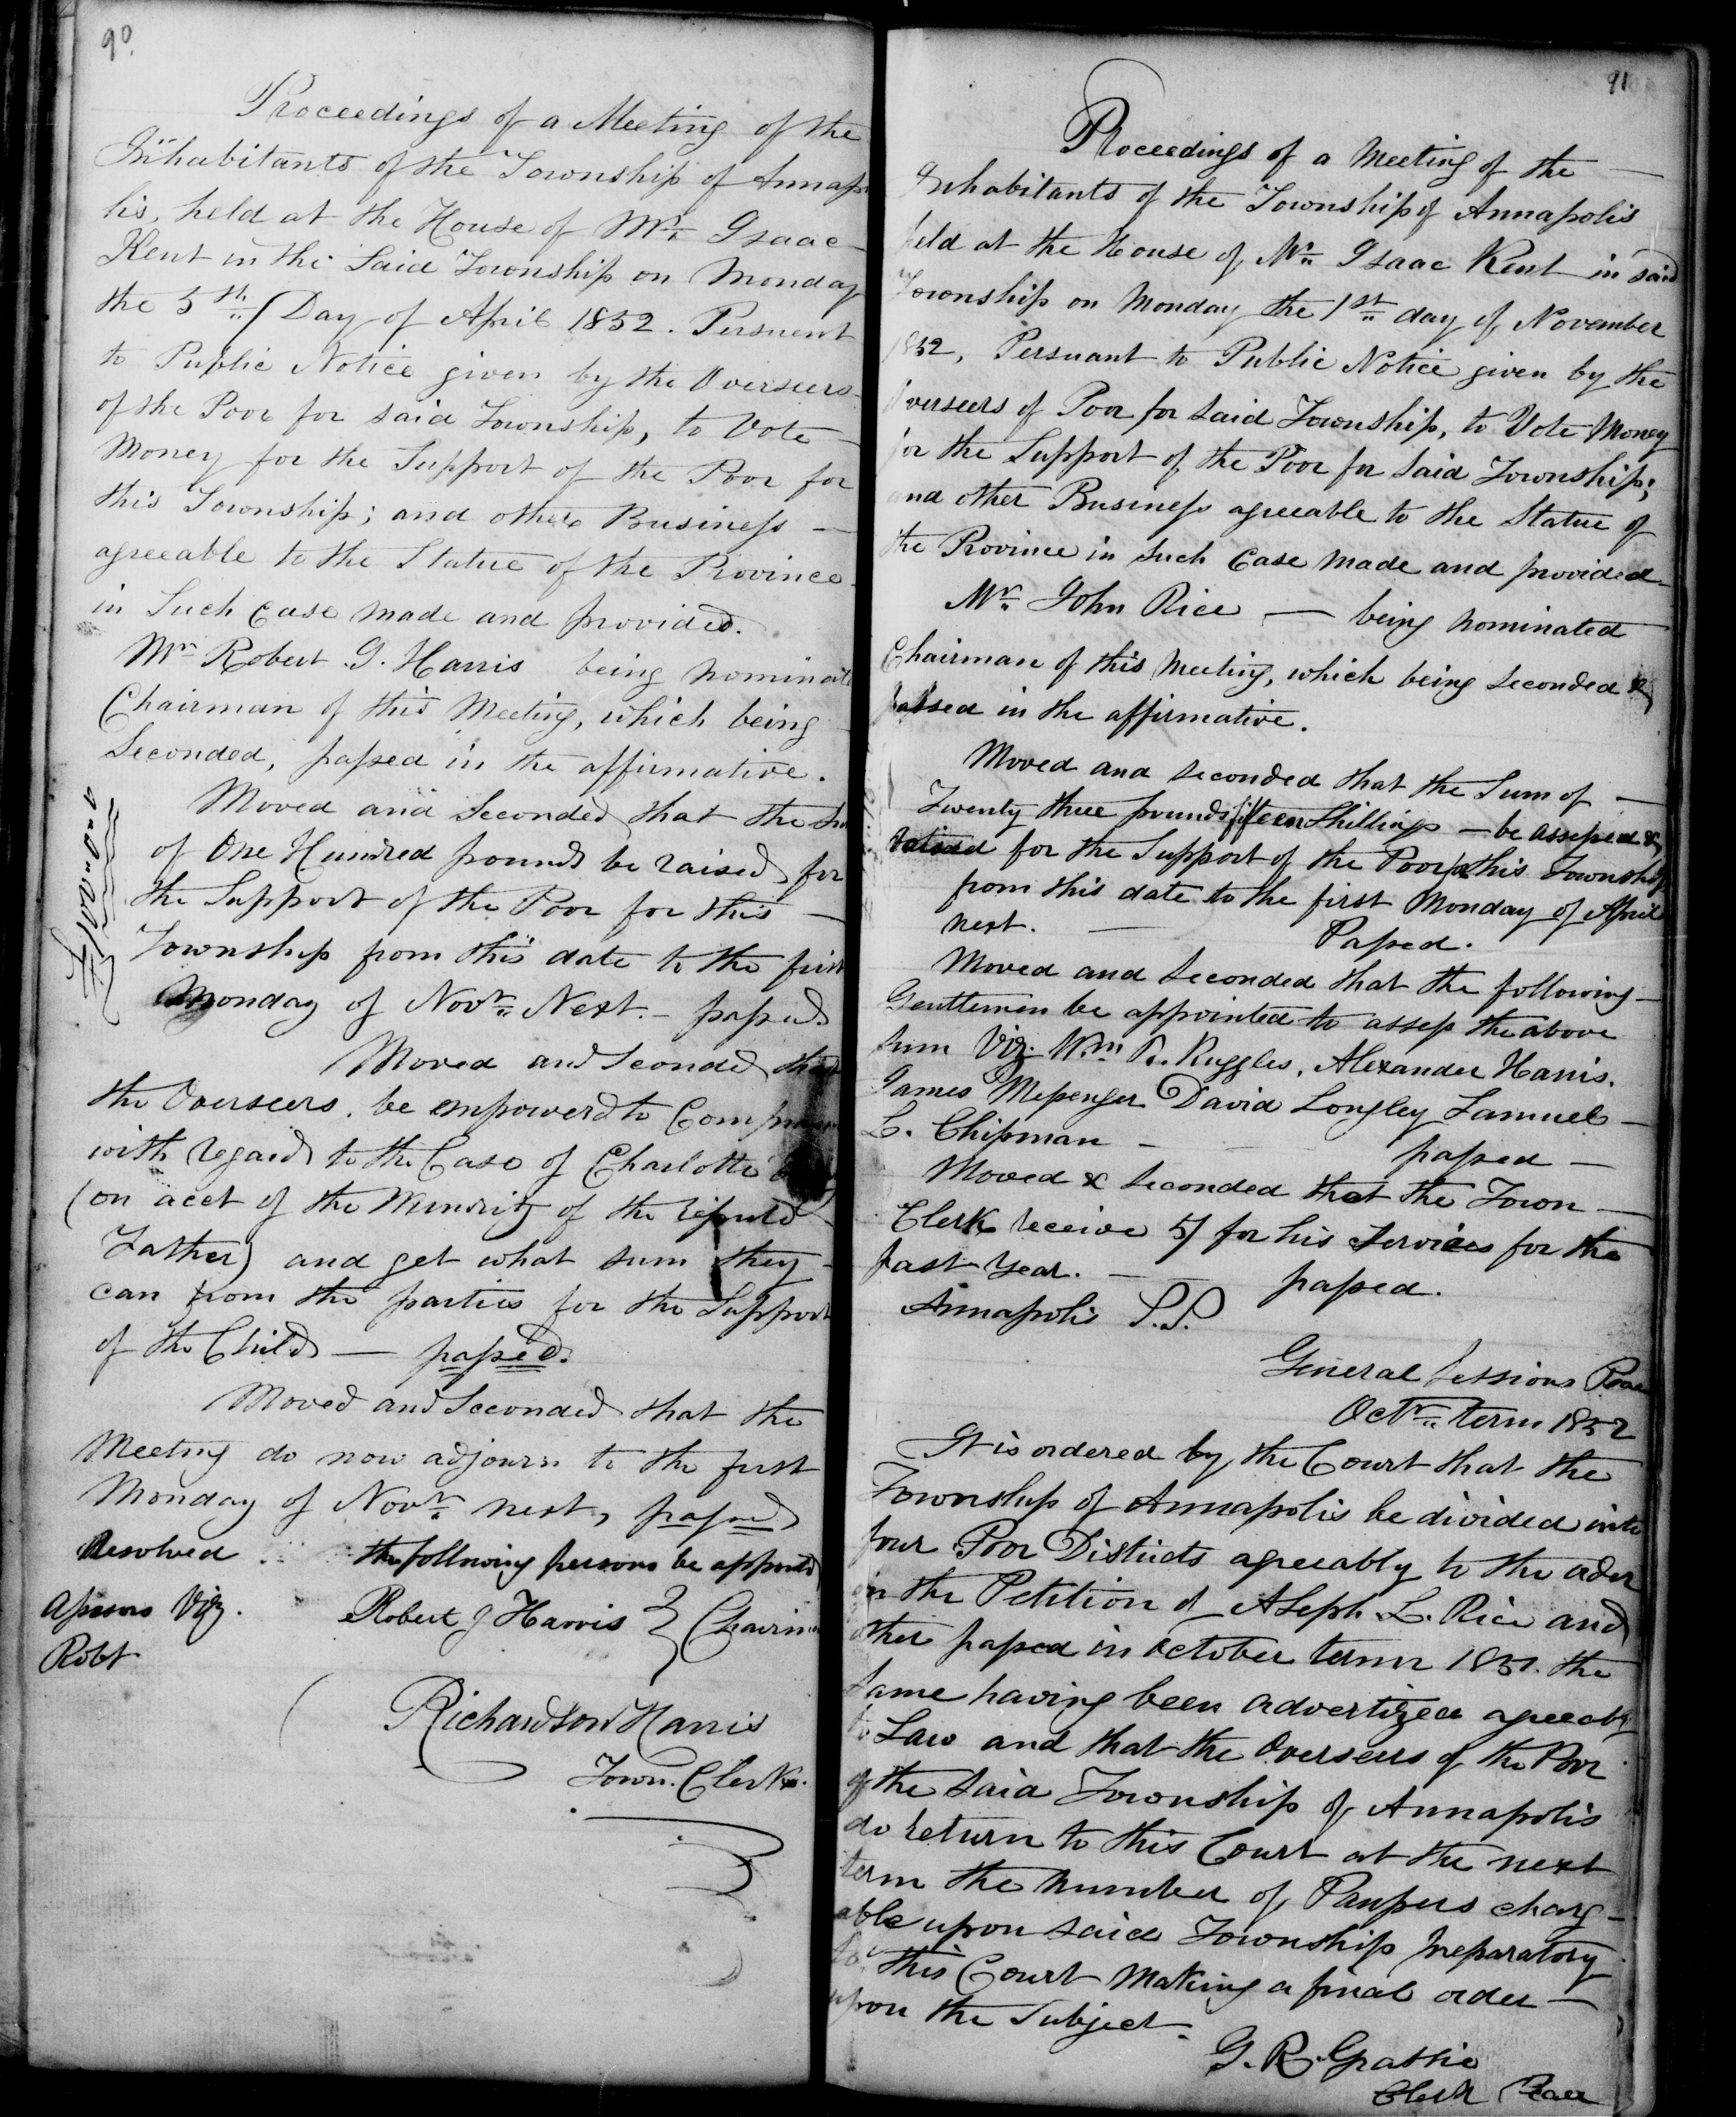 90.
Proceedings of a Meeting of the
Inhabitants of the Township of Annapo
lis, held at the House of Mr. Isaac
Kent in the Said Township on Monday
the 5th Day of April 1852. Persuent
to Public Notice given by the Overseers
of the Poor for said Township, to Vote
Money for the Support of the Poor for
this Township; and other Business —
agreeable to the Statue of the Province
in Such Case made and provided.
Mr. Robert J. Harris being nominat
Chairman of this Meeting, which being
Seconded, passed in the affirmative.
Moved and Seconded that the Su
of One Hundred pounds be raised for
the Support of the Poor for this —
Township from this date to the first
Monday of Novr. Next. — passed
Moved and Seconded that
the Overseers be empowerd to
with regard to the Case of Charlotte
(on acct of the Minority of the reputed
Father) and get what sum they
can from the parties for the Support
of the Child — passed.
Moved and Seconded that the
Meeting do now adjourn to the first
Monday of Novr. next, passed
Resolved the following persons be appointed
Assessors Viz.
Robt
Robert J Harris } Chairm
Richardson Harris
Town. Clerk.
91
Proceedings of a Meeting of the —
Inhabitants of the Township of Annapolis
held at the House of Mr. Isaac Kent in said
Township on Monday the 1st day of November
1852, Persuant to Public Notice given by the
Overseers of Poor for Said Township, to Vote Money
for the Support of the Poor for Said Township;
and other Business agreeable to the Statue of
the Province in Such Case made and provided
Mr. John Rice — being nominated
Chairman of this Meeting, which being Seconded &
passed in the affirmative.
Moved and Seconded that the Sum of —
Twenty three pounds fifteen Shillings — be assessed &
raised for the Support of the Poor for this Township
from this date to the first Monday of April
next. — Passed.
Moved and Seconded that the following —
Gentlemen be appointed to assess the above
sum Viz. Wm R. Ruggles, Alexander Harris.
James Messenger David Longley Samuel —
L. Chipman — passed —
Moved & Seconded that the Town —
Clerk receive 5/ for his Services for the
past Year. — passed.
Annapolis S.S.
General Sessions Peace
Octr. term 1852
It is ordered by the Court that the
Township of Annapolis be divided into
four Poor Districts agreeably to the order
in the Petition of Aseph. L. Rice and
other passed in October term 1851. the
Same having been advertized agreeabl
to Law and that the Overseers of the Poor
of the said Township of Annapolis
do return to this Court at the next
term the number of Paupers charg-
able upon said Township preparatory
to this Court Making a final order —
upon the Subject.
G. R. Grassie
Clerk Peace